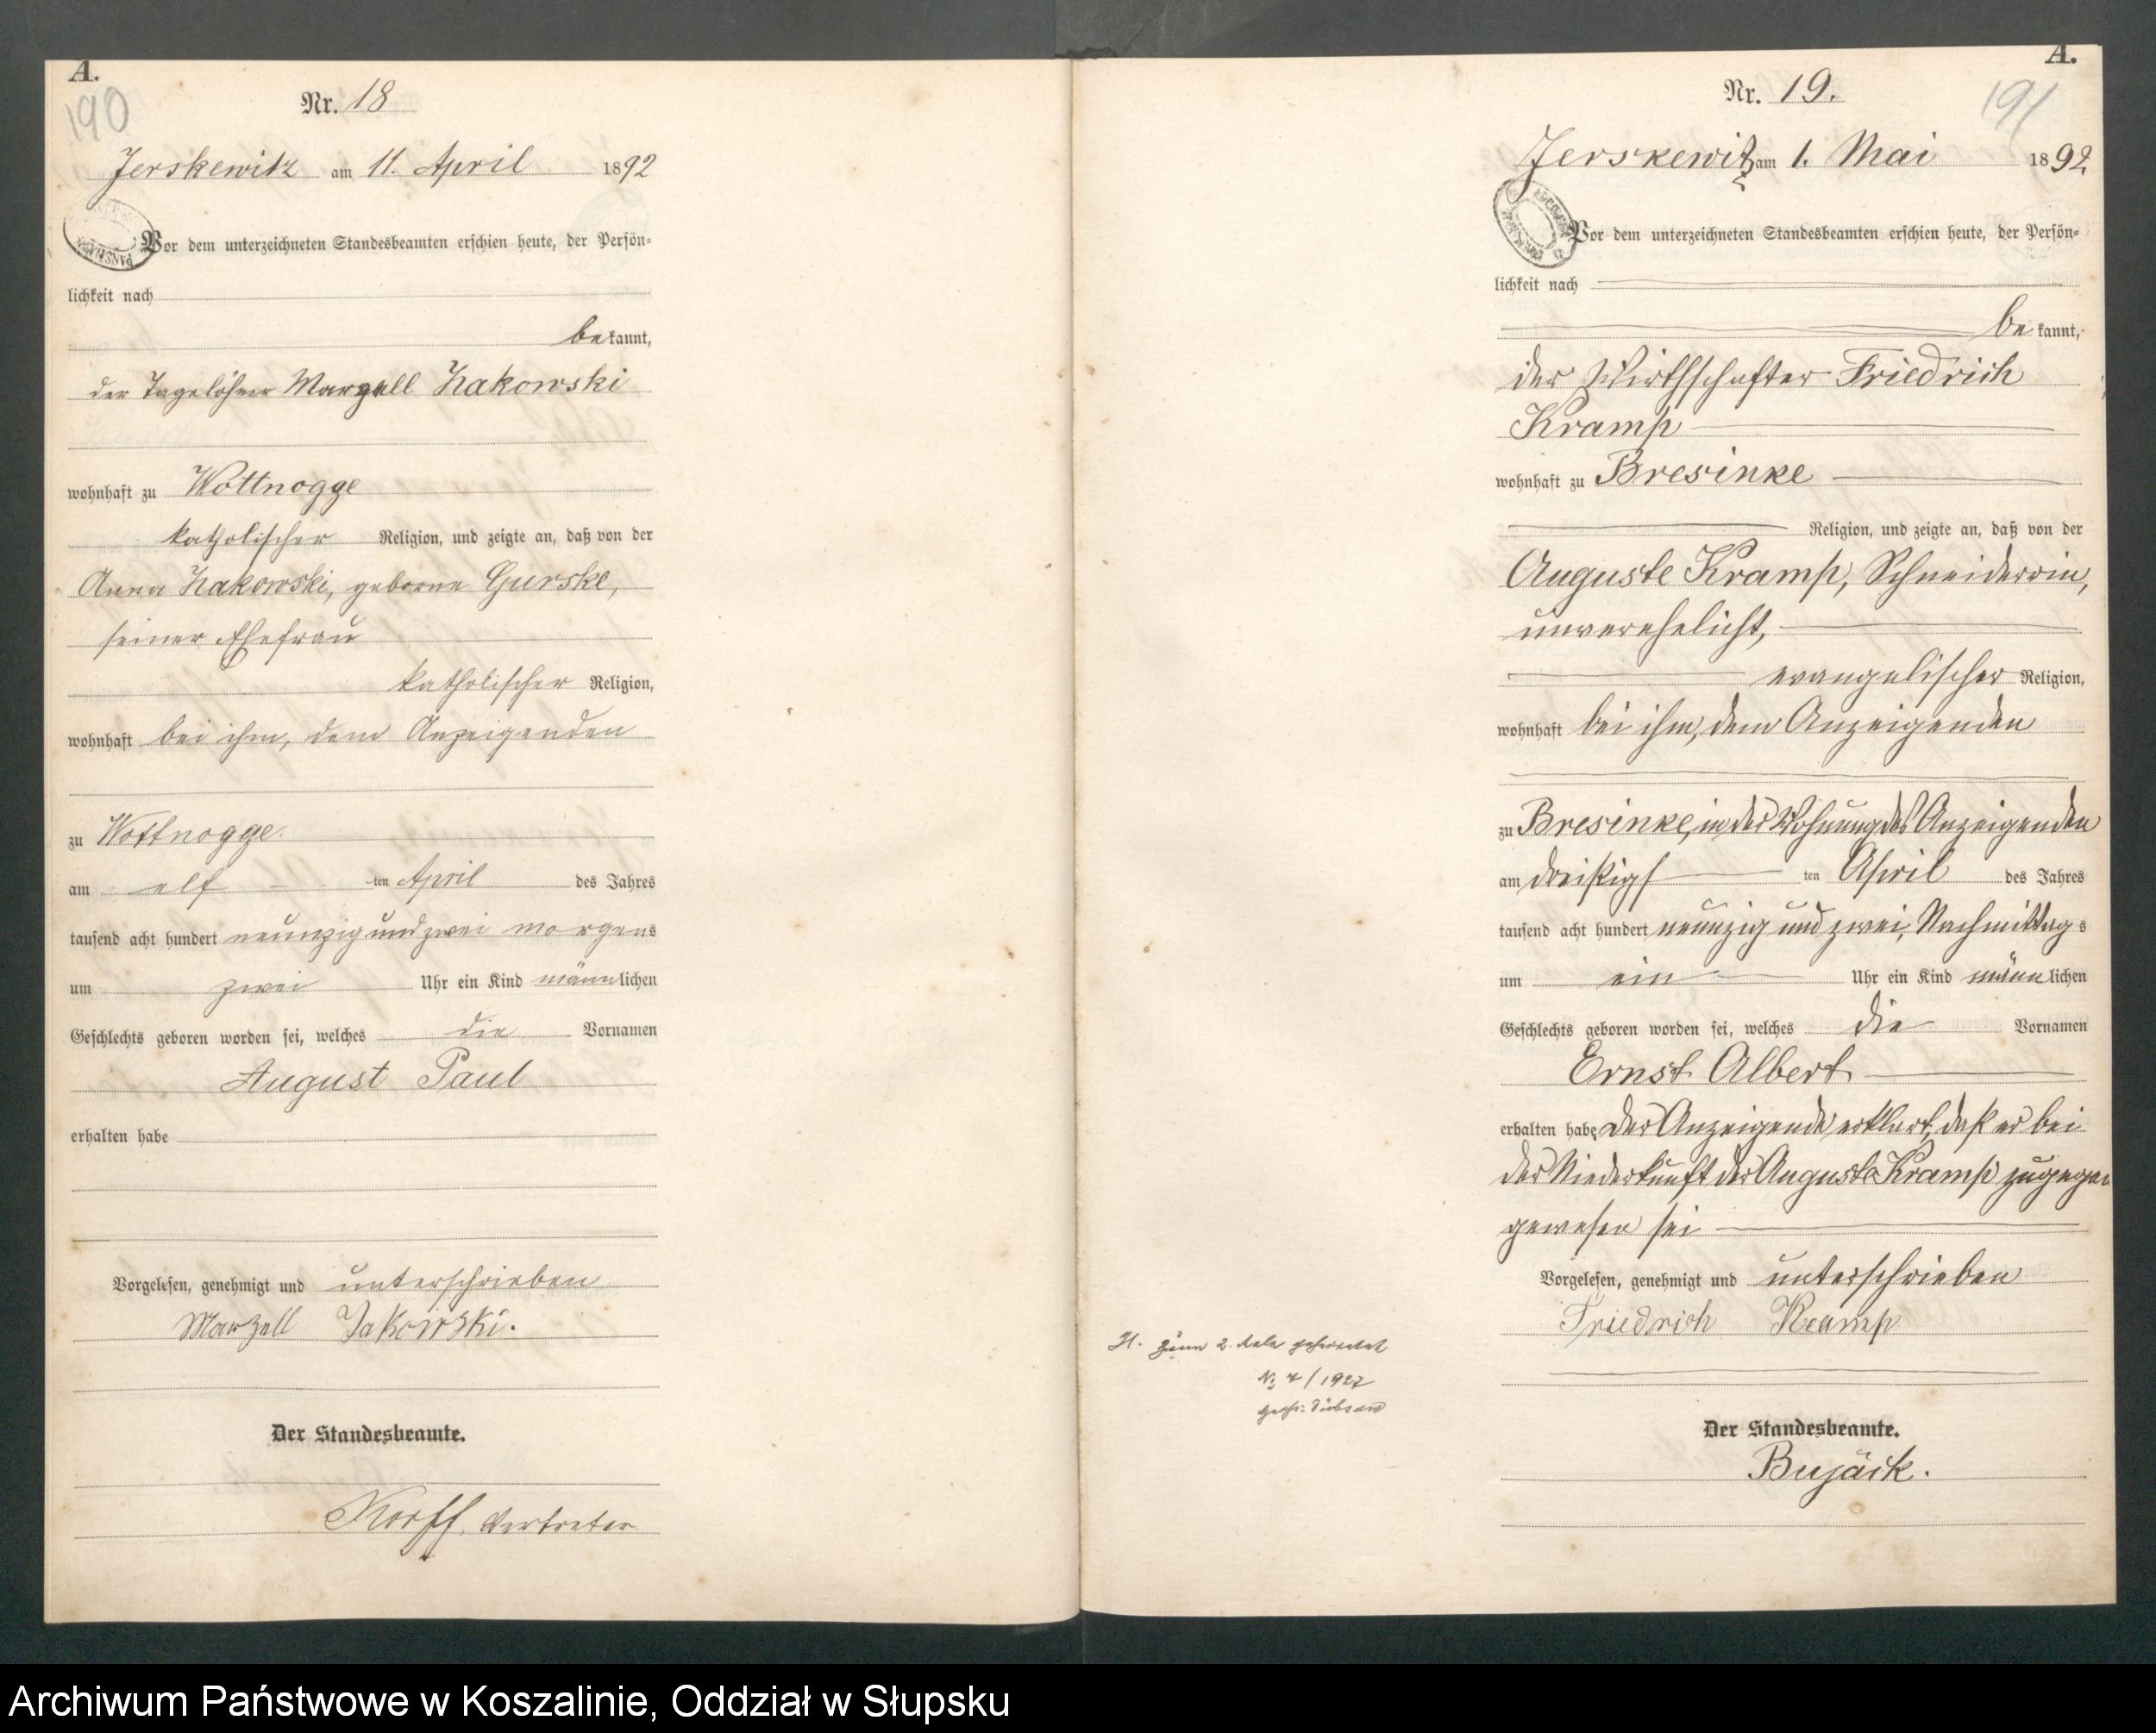 A.
190
Nr. 18
Jerskewitz am 11. April 1892
Vor dem unterzeichneten Standesbeamten erschien heute, der Persön-
lichkeit nach
bekannt,
der Tagelöhner Marzell Zakowski
wohnhaft zu Wottnogge
katholischer Religion, und zeigte an, daß von der
Anna Zakowski, geborne Gurske,
seiner Ehefrau
katholischer Religion,
wohnhaft bei ihm, dem Anzeigenden
zu Wottnogge.
am elf ten April des Jahres
tausend acht hundert neunzig und zwei morgens
um zwei Uhr ein Kind männlichen
Geschlechts geboren worden sei, welches die Vornamen
August Paul
erhalten habe
Vorgelesen, genehmigt und unterschrieben
Marzell Zakowski.
Der Standesbeamte.
Korff, Vertreter
A.
191
Nr. 19.
Jerskewitz am 1. Mai 1892
Vor dem unterzeichneten Standesbeamten erschien heute, der Persön-
lichkeit nach
bekannt,
der Wirthschafter Friedrich
Kramp
wohnhaft zu Bresinke
Religion, und zeigte an, daß von der
Auguste Kramp, Schneiderrin,
unverehelicht,
evangelischer Religion,
wohnhaft bei ihm, dem Anzeigenden
zu Bresinke, in der Wohnung des Anzeigenden
am dreißigs ten April des Jahres
tausend acht hundert neunzig und zwei, Nachmittags
um ein Uhr ein Kind männlichen
Geschlechts geboren worden sei, welches die Vornamen
Ernst Albert
erhalten habe, der Anzeigende erklärt, daß er bei
der Niederkunft der Auguste Kramp zugegen
gewesen sei
Vorgelesen, genehmigt und unterschrieben
Friedrich Kramp
Der Standesbeamte.
Bujäck.
H. zum 2. Male geheiratet
No 4/1927
Archiwum Państwowe w Koszalinie, Oddział w Słupsku